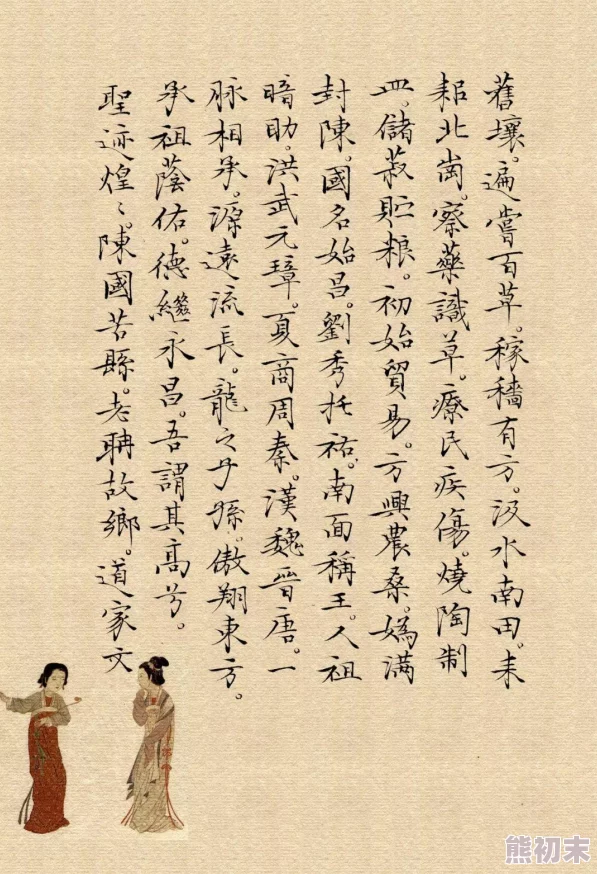 舊壤。遍嘗百草。稼穡有方。汲水南田。耒
耜北崗。察藥識草。療民疾傷。燒陶制
皿。儲菽貯粮。初始貿易。方興農桑。媯滿
封陳。國名始昌。劉秀托祐。南面稱王。人祖
暗助。洪武元璋。夏商周秦。漢魏晉唐。一
脉相承。源遠流長。龍之子孫。傲翔東方。
承祖蔭佑。德繼永昌。吾謂其高兮。
聖迹煌〻。陳國苦縣。老聃故鄉。道家文
熊初末